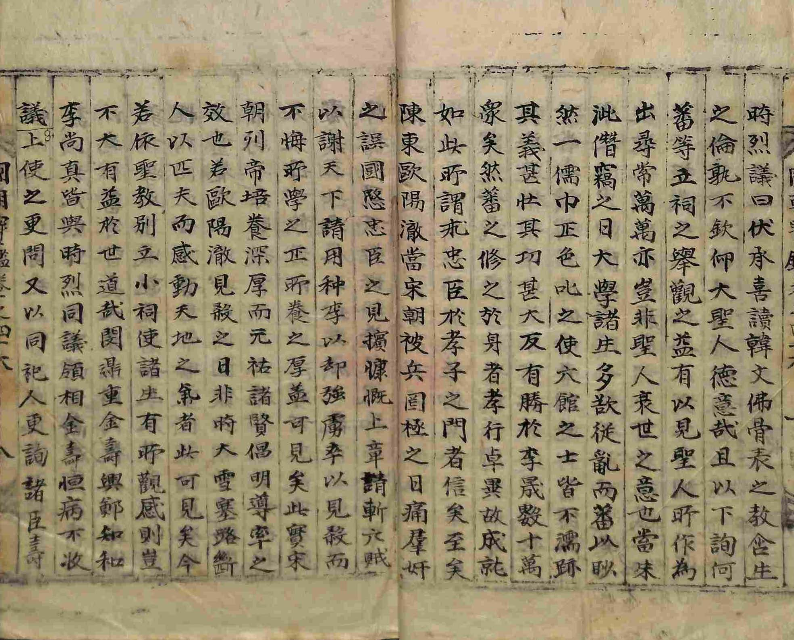 時烈議曰伏承喜讀韓文佛骨表之教含生
之倫孰不欽仰大聖人德意哉且以下詢何
蕃等立祠之擧觀之益有以見聖人所作為
出尋常萬萬亦豈非聖人衰世之意也當朱
泚僭竊之日大學諸生多欲從亂而蕃以眇
然一儒巾正色叱之使六館之士皆不濡跡
其義甚壯其功甚大反有勝於李晟數十萬
衆矣然蕃之修之於身者孝行卓異故成就
如此所謂求忠臣於孝子之門者信矣至矣
陳東歐陽澈當宋朝被兵囯極之日痛羣奸
之誤國愍忠臣之見擯慷慨上章請斬六賊
以謝天下請用种李以却強虜卒以見殺而
不悔所學之正所養之厚益可見矣此實宋
朝列帝培養深厚而元祐諸賢倡明導率之
效也若歐陽澈見殺之日非時大雪塞路斷
人以匹夫而感動天地之氣者此可見矣今
若依聖教別立小祠使諸生有所觀感則豈
不大有益於世道哉閔鼎重金壽興鄭知和
李尚真皆與時烈同議領相金壽恒病不收
議上使之更問又以同祀人更詢諸臣壽